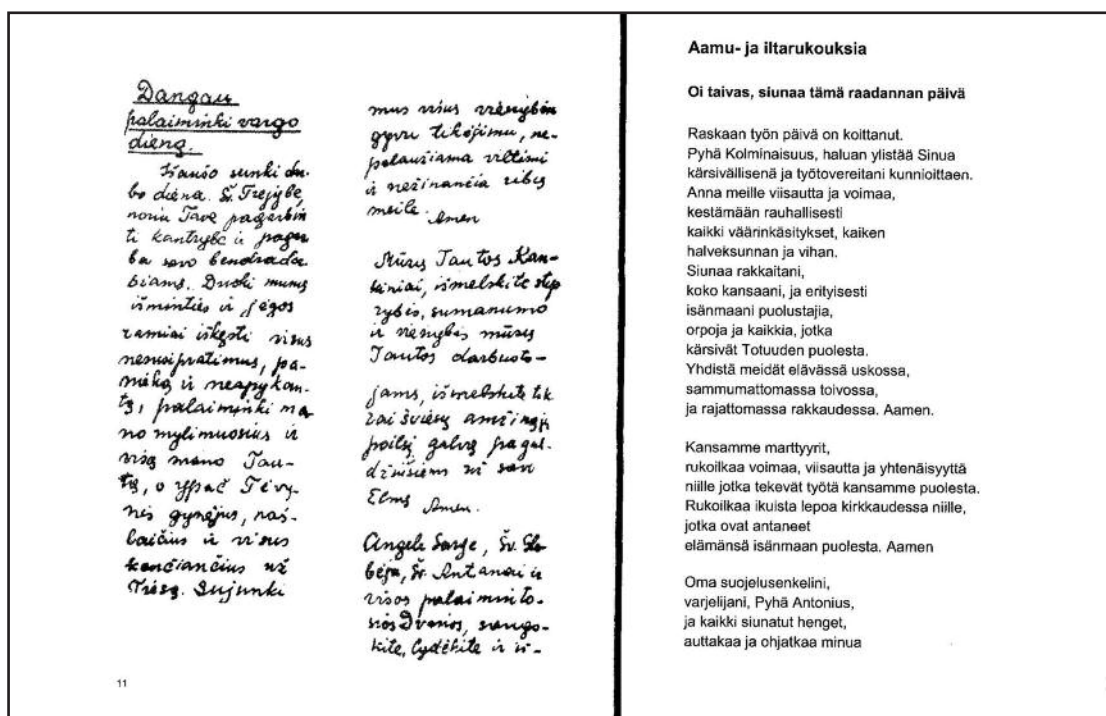 Dangau
palaiminki vargo
dieną.
Išaušo sunki dar-
bo diena. Šv. Trejybe,
noriu Tave pagarbin
ti kantrybe ir pagar
ba savo bendradar
biams. Duoki mums
išminties ir jėgos
ramiai iškęsti visus
nesusipratimus, pa-
nieką ir neapykan-
tą, palaiminki ma
no mylimuosius ir
visą mano Tau-
tą, o ypač Tėvy-
nės gynėjus, naš-
laičius ir visus
kenčiančius už
Tiesą. Sujunki
mus visus vienybėn
gyvu tikėjimu, ne-
palaužiama viltimi
ir nežinančia ribų
meile. Amen
Mūsų Tautos Kan-
kiniai, išmelskite stip
rybės, sumanumo
ir vienybės mūsų
Tautos darbuoto-
jams, išmelskite tik
rai šviesų amžinąjį
poilsį galvą pagul-
džiusiems už savo
Amen.
Angele Sarge, Šv. Glo
bėja, Šv. Antanai ir
visos palaiminto-
sios Dvasios, saugo-
kite, lydėkite ir iš-
11
Aamu- ja iltarukouksia
Oi taivas, siunaa tämä raadannan päivä
Raskaan työn päivä on koittanut.
Pyhä Kolminaisuus, haluan ylistää Sinua
kärsivällisenä ja työtovereitani kunnioittaen.
Anna meille viisautta ja voimaa,
kestämään rauhallisesti
kaikki väärinkäsitykset, kaiken
halveksunnan ja vihan.
Siunaa rakkaitani,
koko kansaani, ja erityisesti
isänmaani puolustajia,
orpoja ja kaikkia, jotka
kärsivät Totuuden puolesta.
Yhdistä meidät elävässä uskossa,
sammumattomassa toivossa,
ja rajattomassa rakkaudessa. Aamen.
Kansamme marttyyrit,
rukoilkaa voimaa, viisautta ja yhtenäisyyttä
niille jotka tekevät työtä kansamme puolesta.
Rukoilkaa ikuista lepoa kirkkaudessa niille,
jotka ovat antaneet
elämänsä isänmaan puolesta. Aamen
Oma suojelusenkelini,
varjelijani, Pyhä Antonius,
ja kaikki siunatut henget,
auttakaa ja ohjatkaa minua